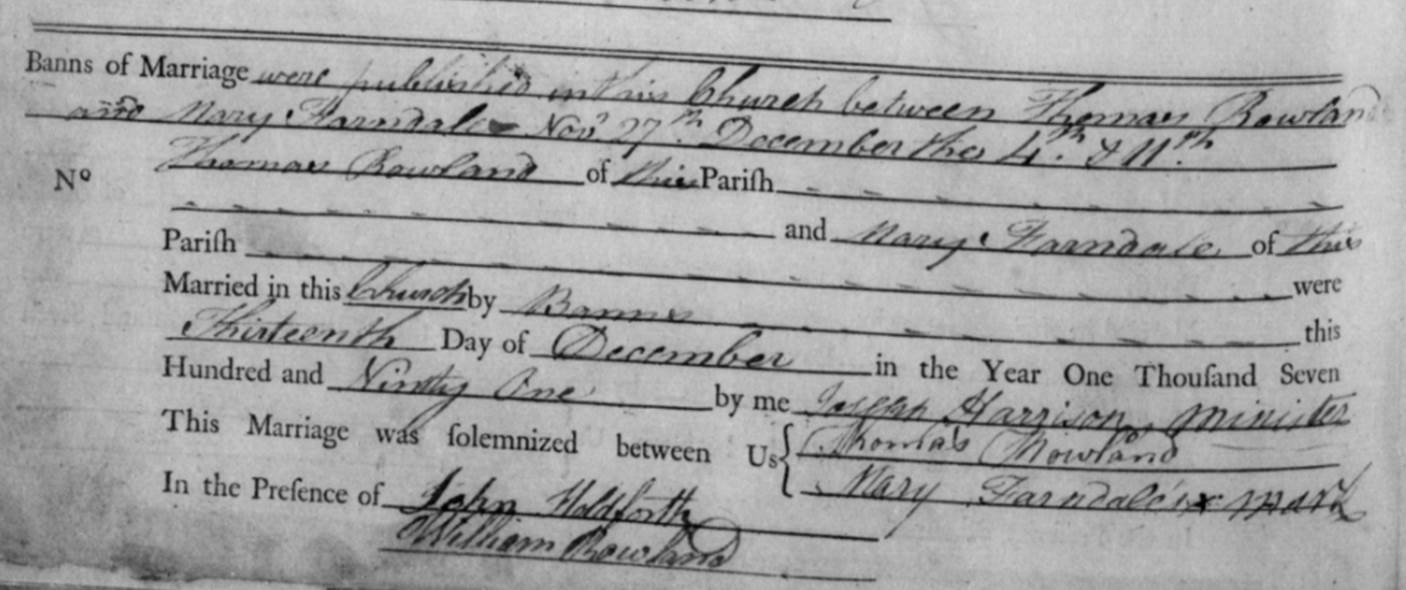 Banns of Marriage were published in this Church between Thomas Rowland
and Mary Farndale Novr 27th. December the 4th. & 11th.
No Thomas Rowland of this Pariſh
and Mary Farndale of this
Pariſh were
Married in this Church by Banns this
Thirteenth Day of December in the Year One Thouſand Seven
Hundred and Ninty One by me Joseph Harrison Minister
This Marriage was ſolemnized between Us { Thomas Rowland
Mary Farndale's x mark
In the Preſence of John Holdforth
William Rowland